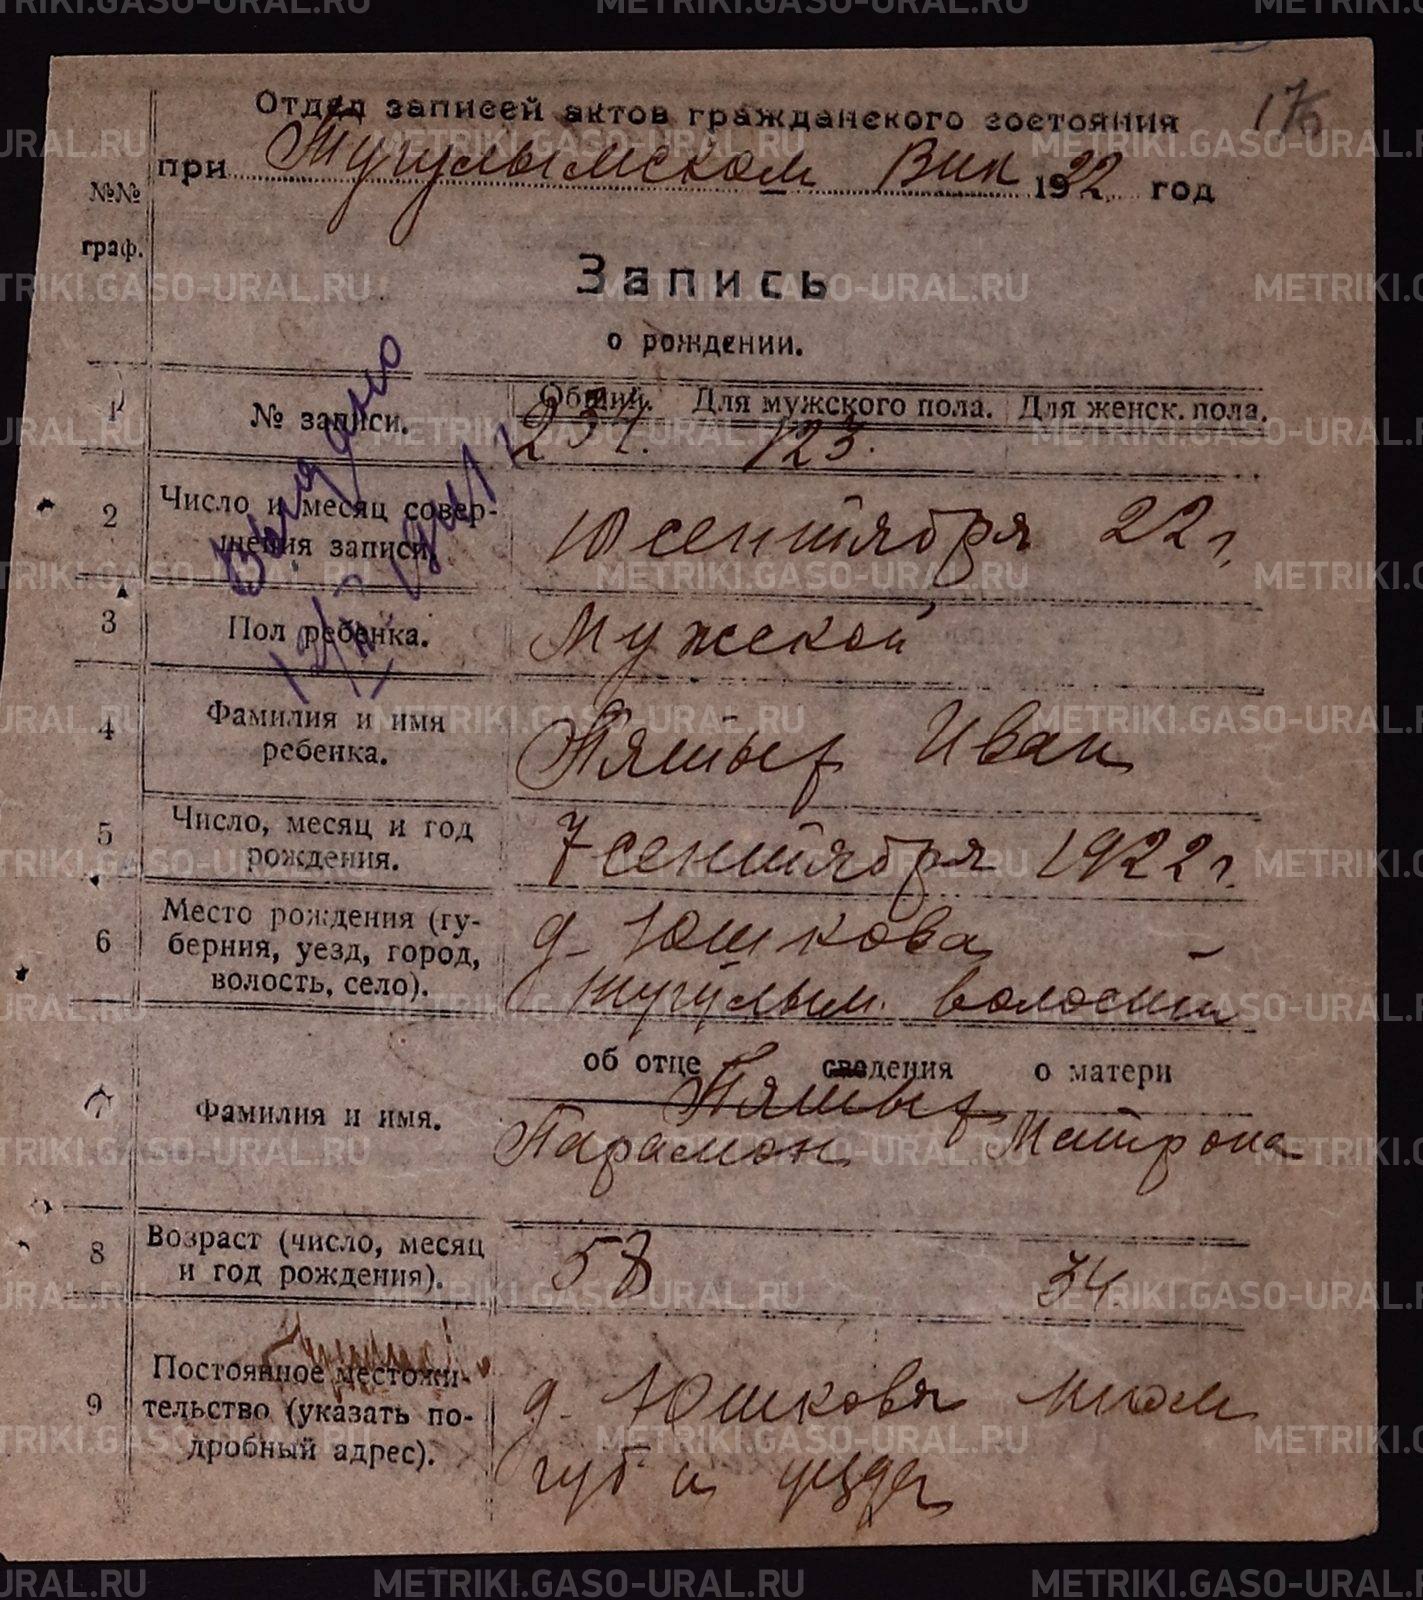 176
Отдел записей актов гражданского состояния
при Тугулымском Вик 1922 год
№№
граф.
Запись
о рождении.
1 № записи. Общий. Для мужского пола. Для женск. пола.
237. 123.
2 Число и месяц совер-
шения записи. 10 сентября 22 г.
3 Пол ребенка. Мужской
4 Фамилия и имя
ребенка. Пятых Иван
5 Число, месяц и год
рождения. 7 сентября 1922 г.
6 Место рождения (гу-
берния, уезд, город,
волость, село).
д. Юшкова
Тугулым. волости
об отце сведения о матери
Пятых
7 Фамилия и имя. Парамон Матрона
8 Возраст (число, месяц
и год рождения). 58 34
9 Постоянное местожи-
тельство (указать по-
дробный адрес).
д. Юшкова
губ и уезда
Выдано
METRIKI.GASO-URAL.RU